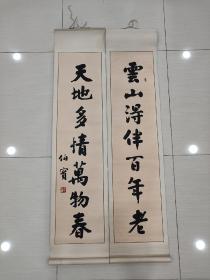 雲山得伴百年老
天地多情萬物春
伯賓